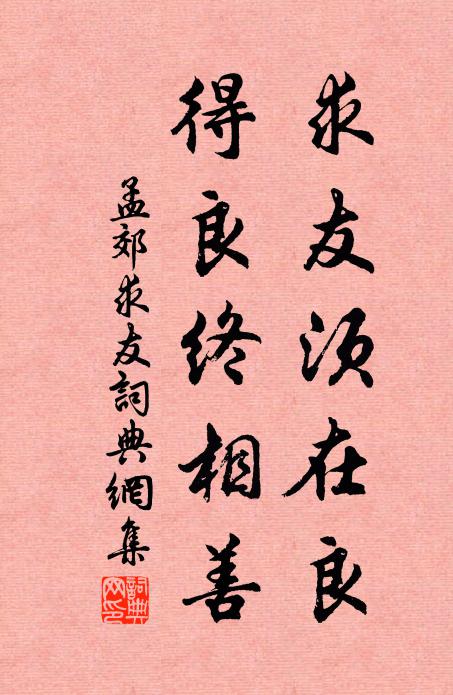 求友須在良
得良終相善
孟郊求友詞典網集
詞典
网印